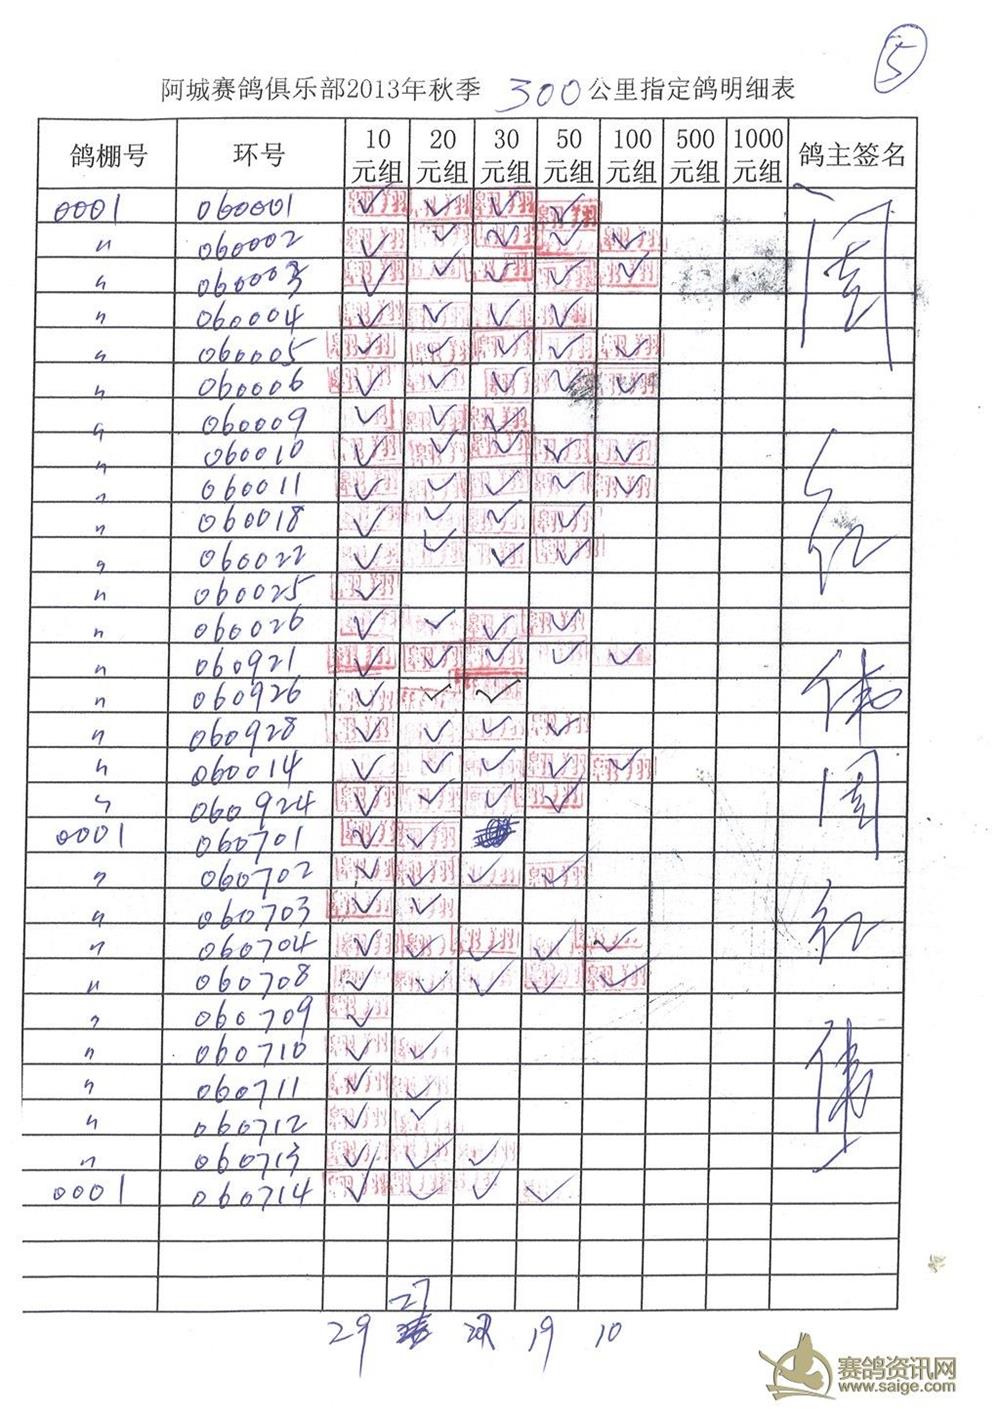 5
阿城赛鸽俱乐部2013年秋季 300 公里指定鸽明细表
鸽棚号 环号 10元组 20元组 30元组 50元组 100元组 500元组 1000元组 鸽主签名
0001 060001 ✓ ✓ ✓ ✓
〃 060002 ✓ ✓ ✓ ✓ ✓
〃 060003 ✓ ✓ ✓ ✓ ✓
〃 060004 ✓ ✓ ✓ ✓
〃 060005 ✓ ✓ ✓ ✓ ✓
〃 060006 ✓ ✓ ✓ ✓ ✓
〃 060009 ✓ ✓ ✓
〃 060010 ✓ ✓ ✓ ✓ ✓
〃 060011 ✓ ✓ ✓ ✓ ✓
〃 060018 ✓ ✓ ✓ ✓
〃 060022 ✓ ✓ ✓ ✓
〃 060025 ✓
〃 060026 ✓ ✓ ✓ ✓
〃 060921 ✓ ✓ ✓ ✓ ✓
〃 060926 ✓ ✓ ✓
〃 060928 ✓ ✓ ✓ ✓
〃 060014 ✓ ✓ ✓ ✓ ✓
〃 060924 ✓ ✓ ✓ ✓
0001 060701 ✓ ✓
〃 060702 ✓ ✓ ✓ ✓
〃 060703 ✓ ✓
〃 060704 ✓ ✓ ✓ ✓ ✓
〃 060708 ✓ ✓ ✓ ✓ ✓
〃 060709 ✓
〃 060710 ✓ ✓
〃 060711 ✓ ✓
〃 060712 ✓ ✓
〃 060713 ✓ ✓ ✓
0001 060714 ✓ ✓ ✓ ✓
周
红
伟
周
红
伟
27
29 19 10
赛鸽资讯网
www.saige.com